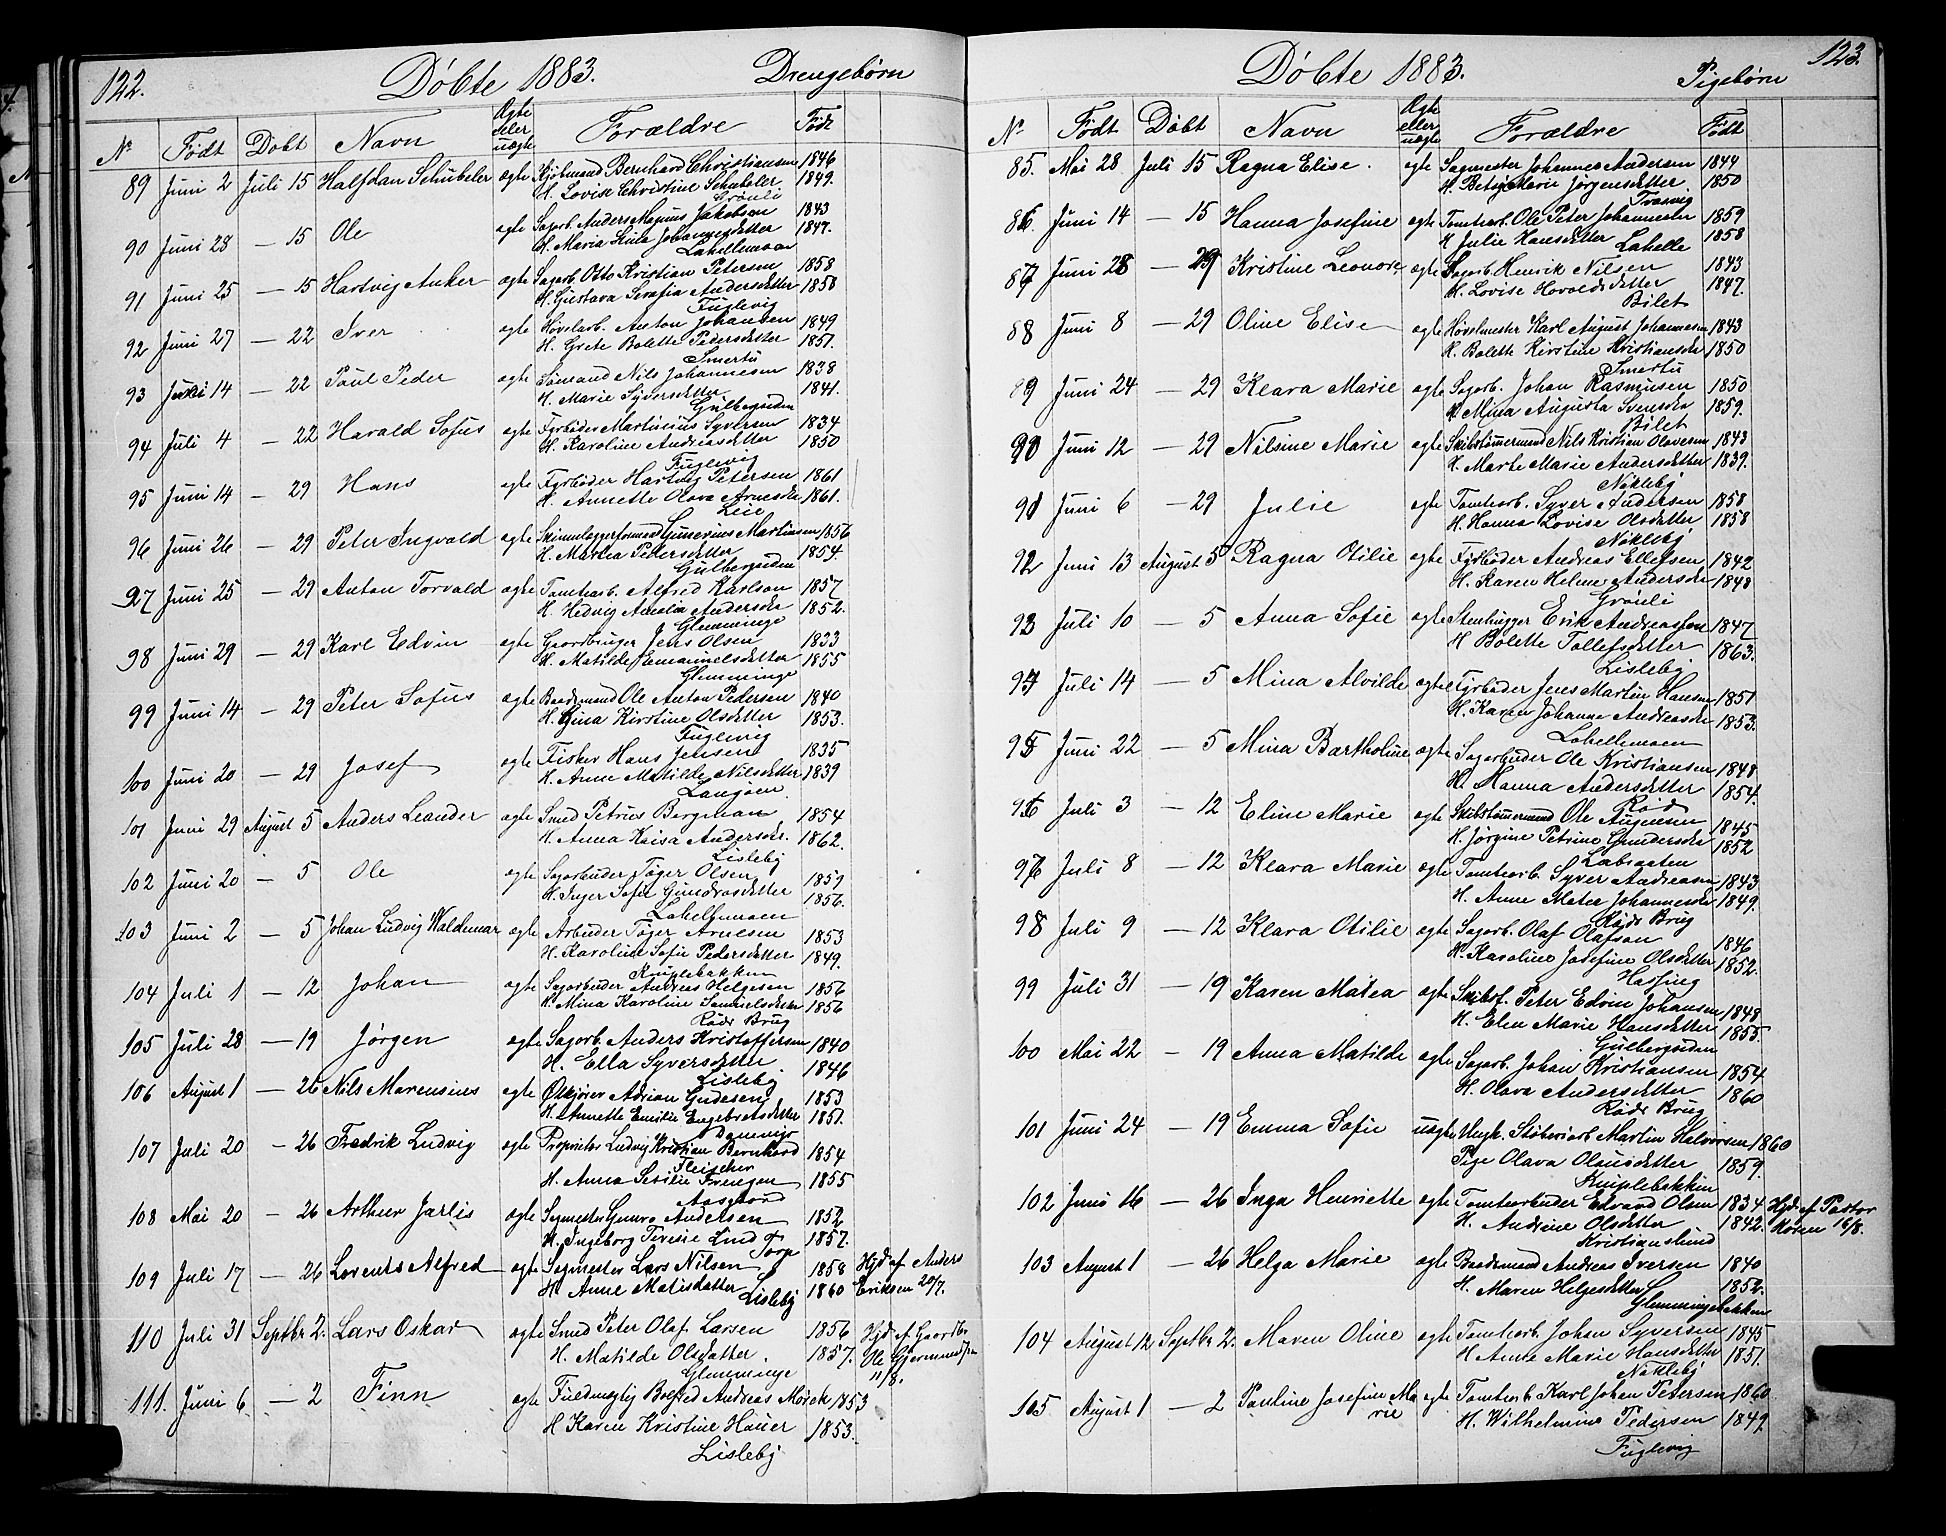 122. Döbte 1883. Drengebörn
No Födt Döbt Navn Ægte eller uægte Forældre Födt
89 Juni 2 Juli 15 Halfdan Schübeler ægte Kjöbmand Bernhard Christiansen 1846
H. Lovise Christine Schübeler 1849.
Grönli
90 Juni 28 — 15 Ole ægte Sagarb. Anders Magnus Jakobsen 1843
H. Maria Stina Johannesdatter 1847.
Lahellemoen
91 Juni 25 — 15 Hartvig Anker ægte Sagarb. Otto Kristian Petersen 1858
H. Gustava Serafia Andersdatter 1858
Fuglevig
92 Juni 27 — 22 Iver ægte Høvelarb. Anton Johansen 1849
H. Grete Bolette Pedersdatter 1851.
Smertu
93 Juni 14 — 22 Paul Peder ægte Sömand Nils Johannesen 1838
H. Marie Syversdatter 1841.
Gulbergsiden
94 Juli 4 — 22 Harald Sofus ægte Fyrböder Martinius Syversen 1834
H. Karoline Andreasdatter 1850
Fuglevig
95 Juni 14 — 29 Hans ægte Fyrböder Hartvig Petersen 1861
H. Annette Olava Arnesdtr 1861.
Leie
96 Juni 26 — 29 Peter Ingvald ægte Skinnelæggerformand Gunerius Martinsen 1856
H. Martea Petersdatter 1854.
Gulbergsiden
97 Juni 25 — 29 Anton Torvald ægte Tomtearb. Alfred Karlson 1857
H. Hedvig Amalia Andersdtr 1852.
Glemminge
98 Juni 29 — 29 Karl Edvin ægte Gaardbruger Jens Olsen 1833
H. Matilde Emanuelsdatter 1855
Glemminge
99 Juni 14 — 29 Peter Sofus ægte Baadsmand Ole Anton Pedersen 1840
H. Gina Kirstine Olsdatter 1853.
Fuglevig
100 Juni 20 — 29 Josef ægte Fisker Hans Jensen 1835
H. Anne Matilde Nilsdatter 1839
Langøen
101 Juni 29 August 5 Anders Leander ægte Smed Petrus Bergman 1854
H. Anna Kaisa Andersdtr. 1862.
Lisleby
102 Juni 20 — 5 Ole ægte Sagarbeider Töger Olsen 1859
H. Inger Sofie Gundrosdatter 1856.
Lahellemoen
103 Juni 2 — 5 Johan Ludvig Waldemar ægte Arbeider Töger Arnesen 1853
H. Karoline Sofie Pedersdatter 1849.
Kniplebakken
104 Juli 1 — 12 Johan ægte Sagarbeider Andreas Helgesen 1856
H. Mina Karoline Samuelsdatter 1856
Röds Brug
105 Juli 28 — 19 Jørgen ægte Sagarb. Anders Kristoffersen 1840
H. Ella Syversdatter 1846
Lisleby
106 August 1 — 26 Nils Marensius ægte Adrian Gudesen 1853
H. Annette Emilie Engebretsdatter 1851.
107 Juli 20 — 26 Fredrik Ludvig ægte Proprietær Ludvig Kristian Bernhard 1854
Fleischer
H. Anna Sesilie Frengen 1855
108 Mai 20 — 26 Arthur Jarlis ægte Sagmester Gunro Andersen 1852
H. Ingeborg Teresie Lund 1857.
Torp
109 Juli 17 — 26 Lorents Alfred ægte Sagmester Lars Nilsen 1858 Hjd af Anders
H. Anne Matisdatter 1860 Eriksen 20/7.
Lisleby
110 Juli 31 Septbr 2. Lars Oskar ægte Smed Peter Olaf Larsen 1856 Hjd af Gaardbr.
H. Matilde Olsdatter 1857. Ole Gjermundsen
Glemminge 11/8.
111. Juni 6 — 2 Finn ægte Fuldmægtig Bolfred Andreas Mörck 1853
H Karen Kristine Hauer 1853.
Lisleby
Döbte 1883. Pigebörn 123.
No Födt Döbt Navn Ægte eller uægte Forældre Födt
85. Mai 28 Juli 15 Ragna Elise. ægte Sagmester Johannes Andersen 1844
H. Betsy Marie Jörgensdatter 1850
Trosvig
86 Juni 14 — 15 Hanna Josefine ægte Tomtearb. Ole Peter Johannesen 1859
H Julie Hansdatter 1858
Lahelle
87 Juni 28 — 29 Kristine Leonore ægte Sagarb. Henrik Nilsen 1843
H. Lovise Hovoldsdatter 1847.
Bilet
88 Juni 8 — 29 Oline Elise ægte Høvelmester Karl August Johannesen 1843
H. Bolette Kirstine Kristiansdtr 1850
Smertu
89 Juni 24 — 29 Klara Marie ægte Sagarb. Johan Rasmusen 1850
H. Mina Augusta Svensdtr 1859.
Bilet
90 Juni 12 — 29 Nilsine Marie ægte Skibstömmermand Nils Kristian Olavesen 1843
H. Marte Marie Andersdatter 1839.
Nökleby
91 Juni 6 — 29 Julie ægte Tomtearb. Syver Andersen 1858
H. Hanna Lovise Olsdatter 1858
Nökleby
92 Juni 13 August 5 Ragna Otilie ægte Fyrböder Andreas Ellefsen 1842
H. Karen Helene Andersdtr 1848
Grönli
93 Juli 10 — 5 Anna Sofie ægte Stenhugger Erik Andreassen 1847
H Bolette Tollefsdatter 1863.
Lisleby
94 Juli 14 — 5 Mina Alvilde ægte Fyrböder Jens Martin Hansen 1851
H. Karen Johanne Andreasdtr 1853.
Lahellemoen
95 Juni 22 — 5 Mina Bartholine ægte Sagarbeider Ole Kristiansen 1848
H. Hanna Andersdatter 1854.
Röd
96 Juli 3 — 12 Eline Marie ægte Skibstömmermand Ole Augensen 1845
H. Jørgine Petrine Gundersdtr 1852
Labraaten
97 Juli 8 — 12 Klara Marie ægte Tomtearb. Syver Andreasen 1843
H. Anne Meter Johannesdtr 1849.
Röds Brug
98 Juli 9 — 12 Klara Otilie ægte Sagarb. Olaf Olafson 1846
H. Karoline Josefine Olsdatter 1852.
Hassing
99 Juli 31 — 19 Karen Matea ægte Skibsf. Peter Edvin Johansen 1848
H. Elen Marie Hansdatter 1855.
Gulbergsiden
100 Mai 22 — 19 Anna Matilde ægte Sagarb. Johan Kristiansen 1854
H. Olava Andersdatter 1860
Röds Brug
101 Juni 24 — 19 Emma Sofie uægte Ungk. Støberiarb Martin Halvorsen 1860
Pige Olava Olausdatter 1859.
Kniplebakken
102 Juni 16 — 26 Inga Henriette ægte Tomtearbeider Edvard Olsen 1834 Hjd. af Pastor
H. Andrine Olsdatter 1842. Koren 16/8.
Kristianslund
103 August 1 — 26 Helga Marie ægte Baadsmand Andreas Iversen 1840
H. Maren Helgesdatter 1852.
Glemmingebakken
104 August 12 Septbr 2. Maren Oline ægte Tomtearb. Johan Syversen 1845
H Anne Marie Hansdatter 1851.
Nökleby
105 August 1 — 2 Pauline Josefine Ma ægte Tomtearb Karl Johan Petersen 1860
rie H. Wilhelmine Pedersen 1849.
Fuglevig